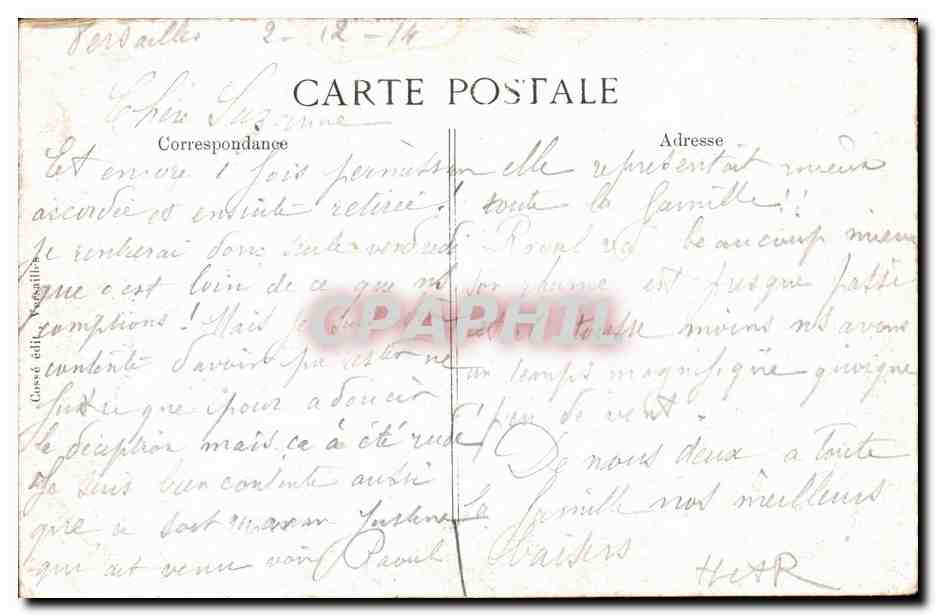 Versailles 2-12-14
CARTE POSTALE
Chère Suzanne
Correspondance
Et encore 1 fois permission
accordée et ensuite retirée!
Je rentrerai donc seule vendredi
que c'est loin de ce que ns
comptions! Mais je suis
contente d'avoir pu rester ne
fut ce que pour adoucir
la déception mais ça a été rude
Je suis bien contente aussi
que ce soit maman Justine
qui ait venu voir Raoul
Adresse
elle représentait mieux
toute la famille!!
Raoul va beaucoup mieux
son rhume est presque passé
et tousse moins ns avons
un temps magnifique quoique
peu de vent.
De nous deux a toute
la famille nos meilleurs
baisers
H et R
Cossé édit. Versailles
CPAPHIL